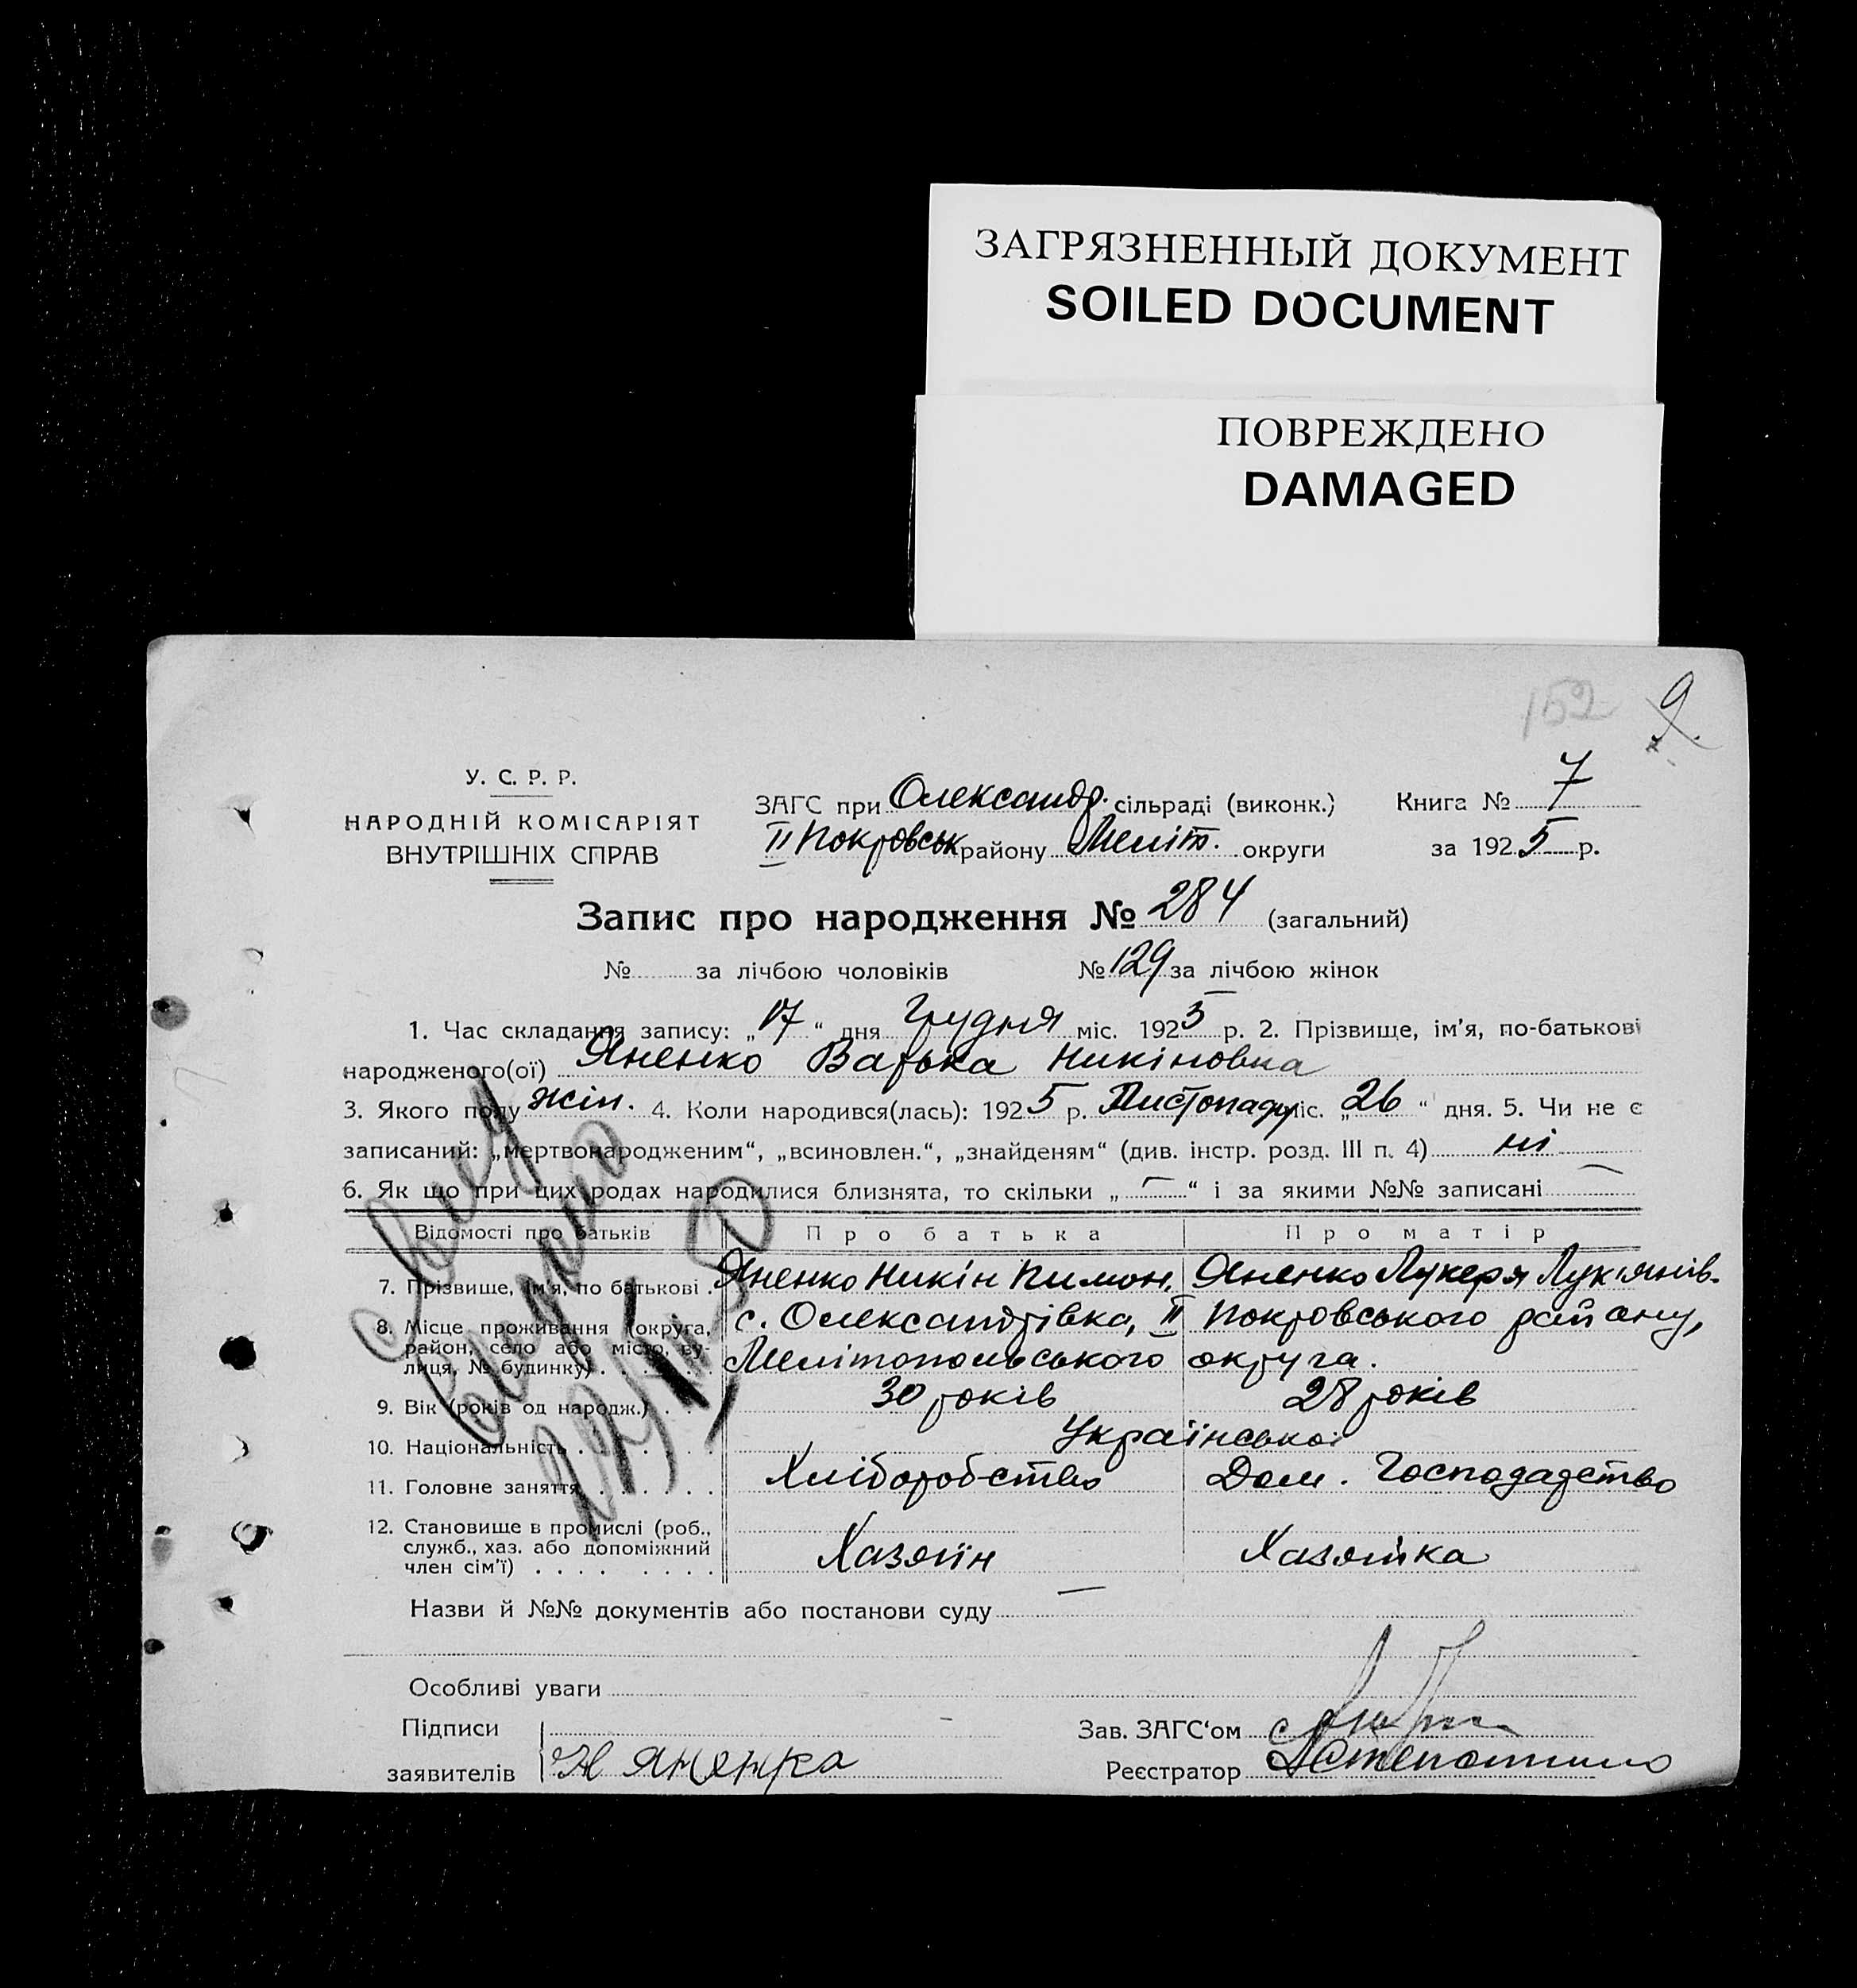 ЗАГРЯЗНЕННЫЙ ДОКУМЕНТ
SOILED DOCUMENT
ПОВРЕЖДЕНО
DAMAGED
152 9.
У. С. Р. Р.
НАРОДНІЙ КОМІСАРІЯТ
ВНУТРІШНІХ СПРАВ
ЗАГС при Олександр. сільраді (виконк.) Книга № 7
II Покровськ району Меліт. округи за 1925 р.
Запис про народження № 284 (загальний)
№ за лічбою чоловіків № 129 за лічбою жінок
1. Час складання запису: „17“ дня Грудня міс. 1925 р. 2. Прізвище, ім'я, по-батькові
народженого(ої) Яненко Варька Никіновна
3. Якого полу жін. 4. Коли народився(лась): 1925 р. Листопаду міс. „26“ дня. 5. Чи не є
записаний: „мертвонародженим“, „всиновлен.“, „знайденям“ (див. інстр. розд. III п. 4) ні
6. Як що при цих родах народилися близнята, то скільки „—“ і за якими №№ записані —
Відомості про батьків Про батька Про матір
7. Прізвище, ім'я, по батькові . Яненко Никін Пимон. Яненко Лукеря Лук'янів.
8. Місце проживання (округа, район, село або місто, вулиця, № будинку) с. Олександрівка, II Покровського району,
Мелітопольського округа.
9. Вік (років од народж.) . . . 30 років 28 років
10. Національність . . . . . . Української
11. Головне заняття . . . . . . Хліборобство Дом. Господарство
12. Становище в промислі (роб.,
служб., хаз. або допоміжний
член сім'ї) . . . . . . . . Хазяїн Хазяйка
Назви й №№ документів або постанови суду —
Особливі уваги
Підписи
заявителів Н Яненка
Зав. ЗАГС‘ом
Реєстратор